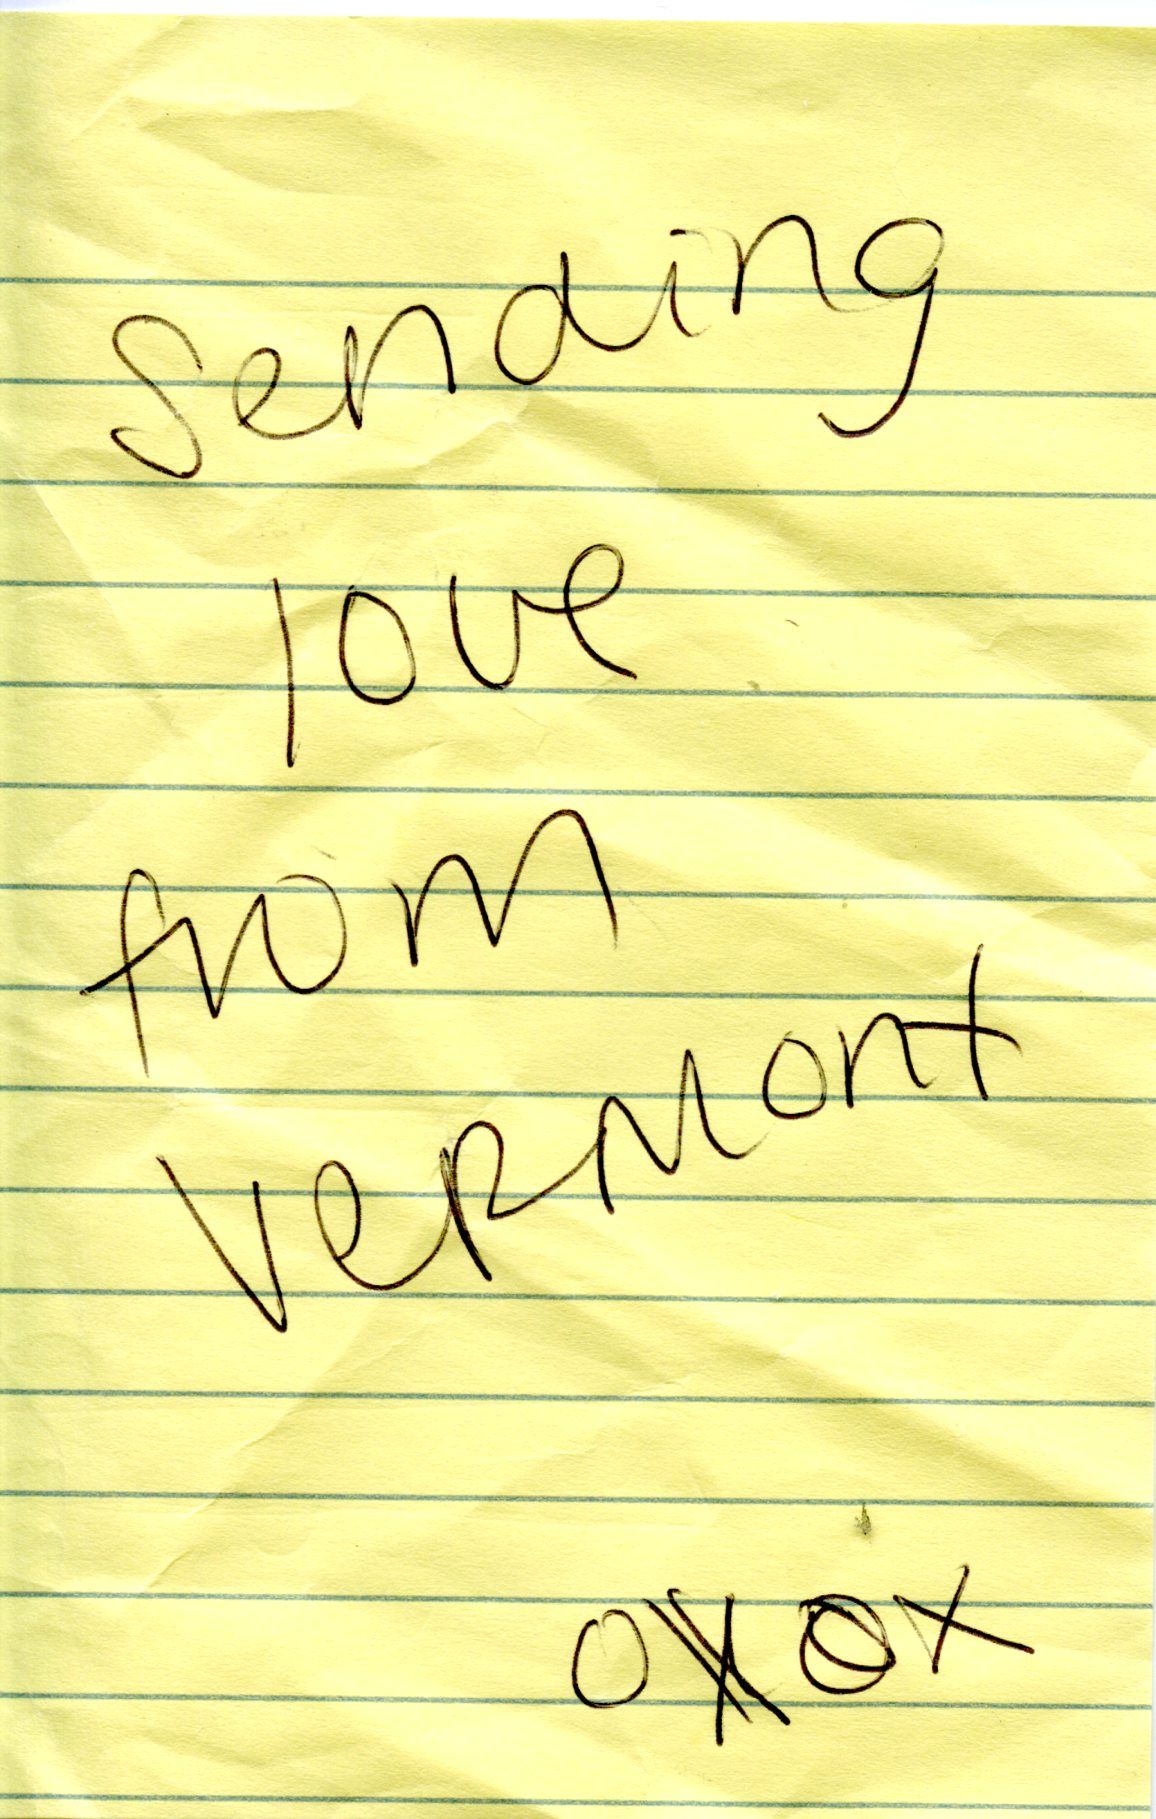 Sending
love
from
VeRMont
oXox